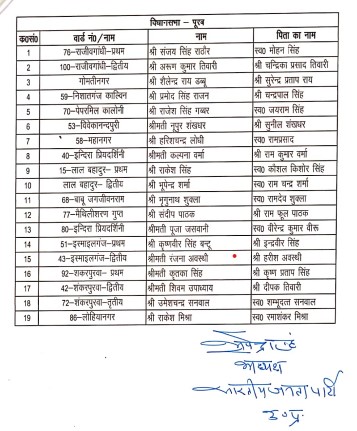 विधानसभा – पूरब
क०सं० वार्ड नं० / नाम नाम पिता का नाम
1 76–राजीवगांधी–प्रथम श्री संजय सिंह राठौर स्व० मोहन सिंह
2 100–राजीवगांधी–द्वितीय श्री अरूण कुमार तिवारी श्री चन्द्रिका प्रसाद तिवारी
3 गोमतीनगर श्री शैलेन्द्र राय डब्बू श्री सुरेन्द्र प्रताप राय
4 59–निशातगंज काल्विन श्री प्रमोद सिंह राजन श्री चन्द्रपाल सिंह
5 70–पेपरमिल कालोनी श्री राजेश सिंह गब्बर स्व० जयराम सिंह
6 53–विवेकानन्दपुरी श्रीमती नूपुर शंखधर श्री सुनील शंखधर
7 58–महानगर श्री हरिशचन्द्र लोधी स्व० रामप्रसाद
8 40–इन्दिरा प्रियदर्शिनी श्रीमती कल्पना वर्मा श्री राम कुमार वर्मा
9 15–लाल बहादुर– प्रथम श्री राकेश सिंह स्व० कौशल किशोर सिंह
10 लाल बहादुर– द्वितीय श्री भूपेन्द्र शर्मा स्व० राम चन्द्र शर्मा
11 68–बाबू जगजीवनराम श्री भृगुनाथ शुक्ला स्व० रामदेव शुक्ला
12 77–मैथिलीशरण गुप्त श्री संदीप पाठक श्री राम कूल पाठक
13 80–इन्दिरा प्रियदर्शिनी श्रीमती पूजा जसवानी स्व० वीरेन्द्र कुमार वीरू
14 51–इस्माइलगंज–प्रथम श्री कृष्णवीर सिंह बन्टू श्री इन्द्रवीर सिंह
15 43–इस्माइलगंज–द्वितीय श्रीमती रंजना अवस्थी श्री हरीश अवस्थी
16 92–शंकरपुरवा– प्रथम श्रीमती कुतका सिंह श्री कृष्ण प्रताप सिंह
17 42–शंकरपुरवा–द्वितीय श्रीमती शिवम उपाध्याय श्री दीपक तिवारी
18 72–शंकरपुरवा–तृतीय श्री उमेशचन्द्र सनवाल स्व० शम्भूदत्त सनवाल
19 86–लोहियानगर श्री राकेश मिश्रा स्व० रमाशंकर मिश्रा
अध्यक्ष
भारतीय जनता पार्टी
उ०प्र०